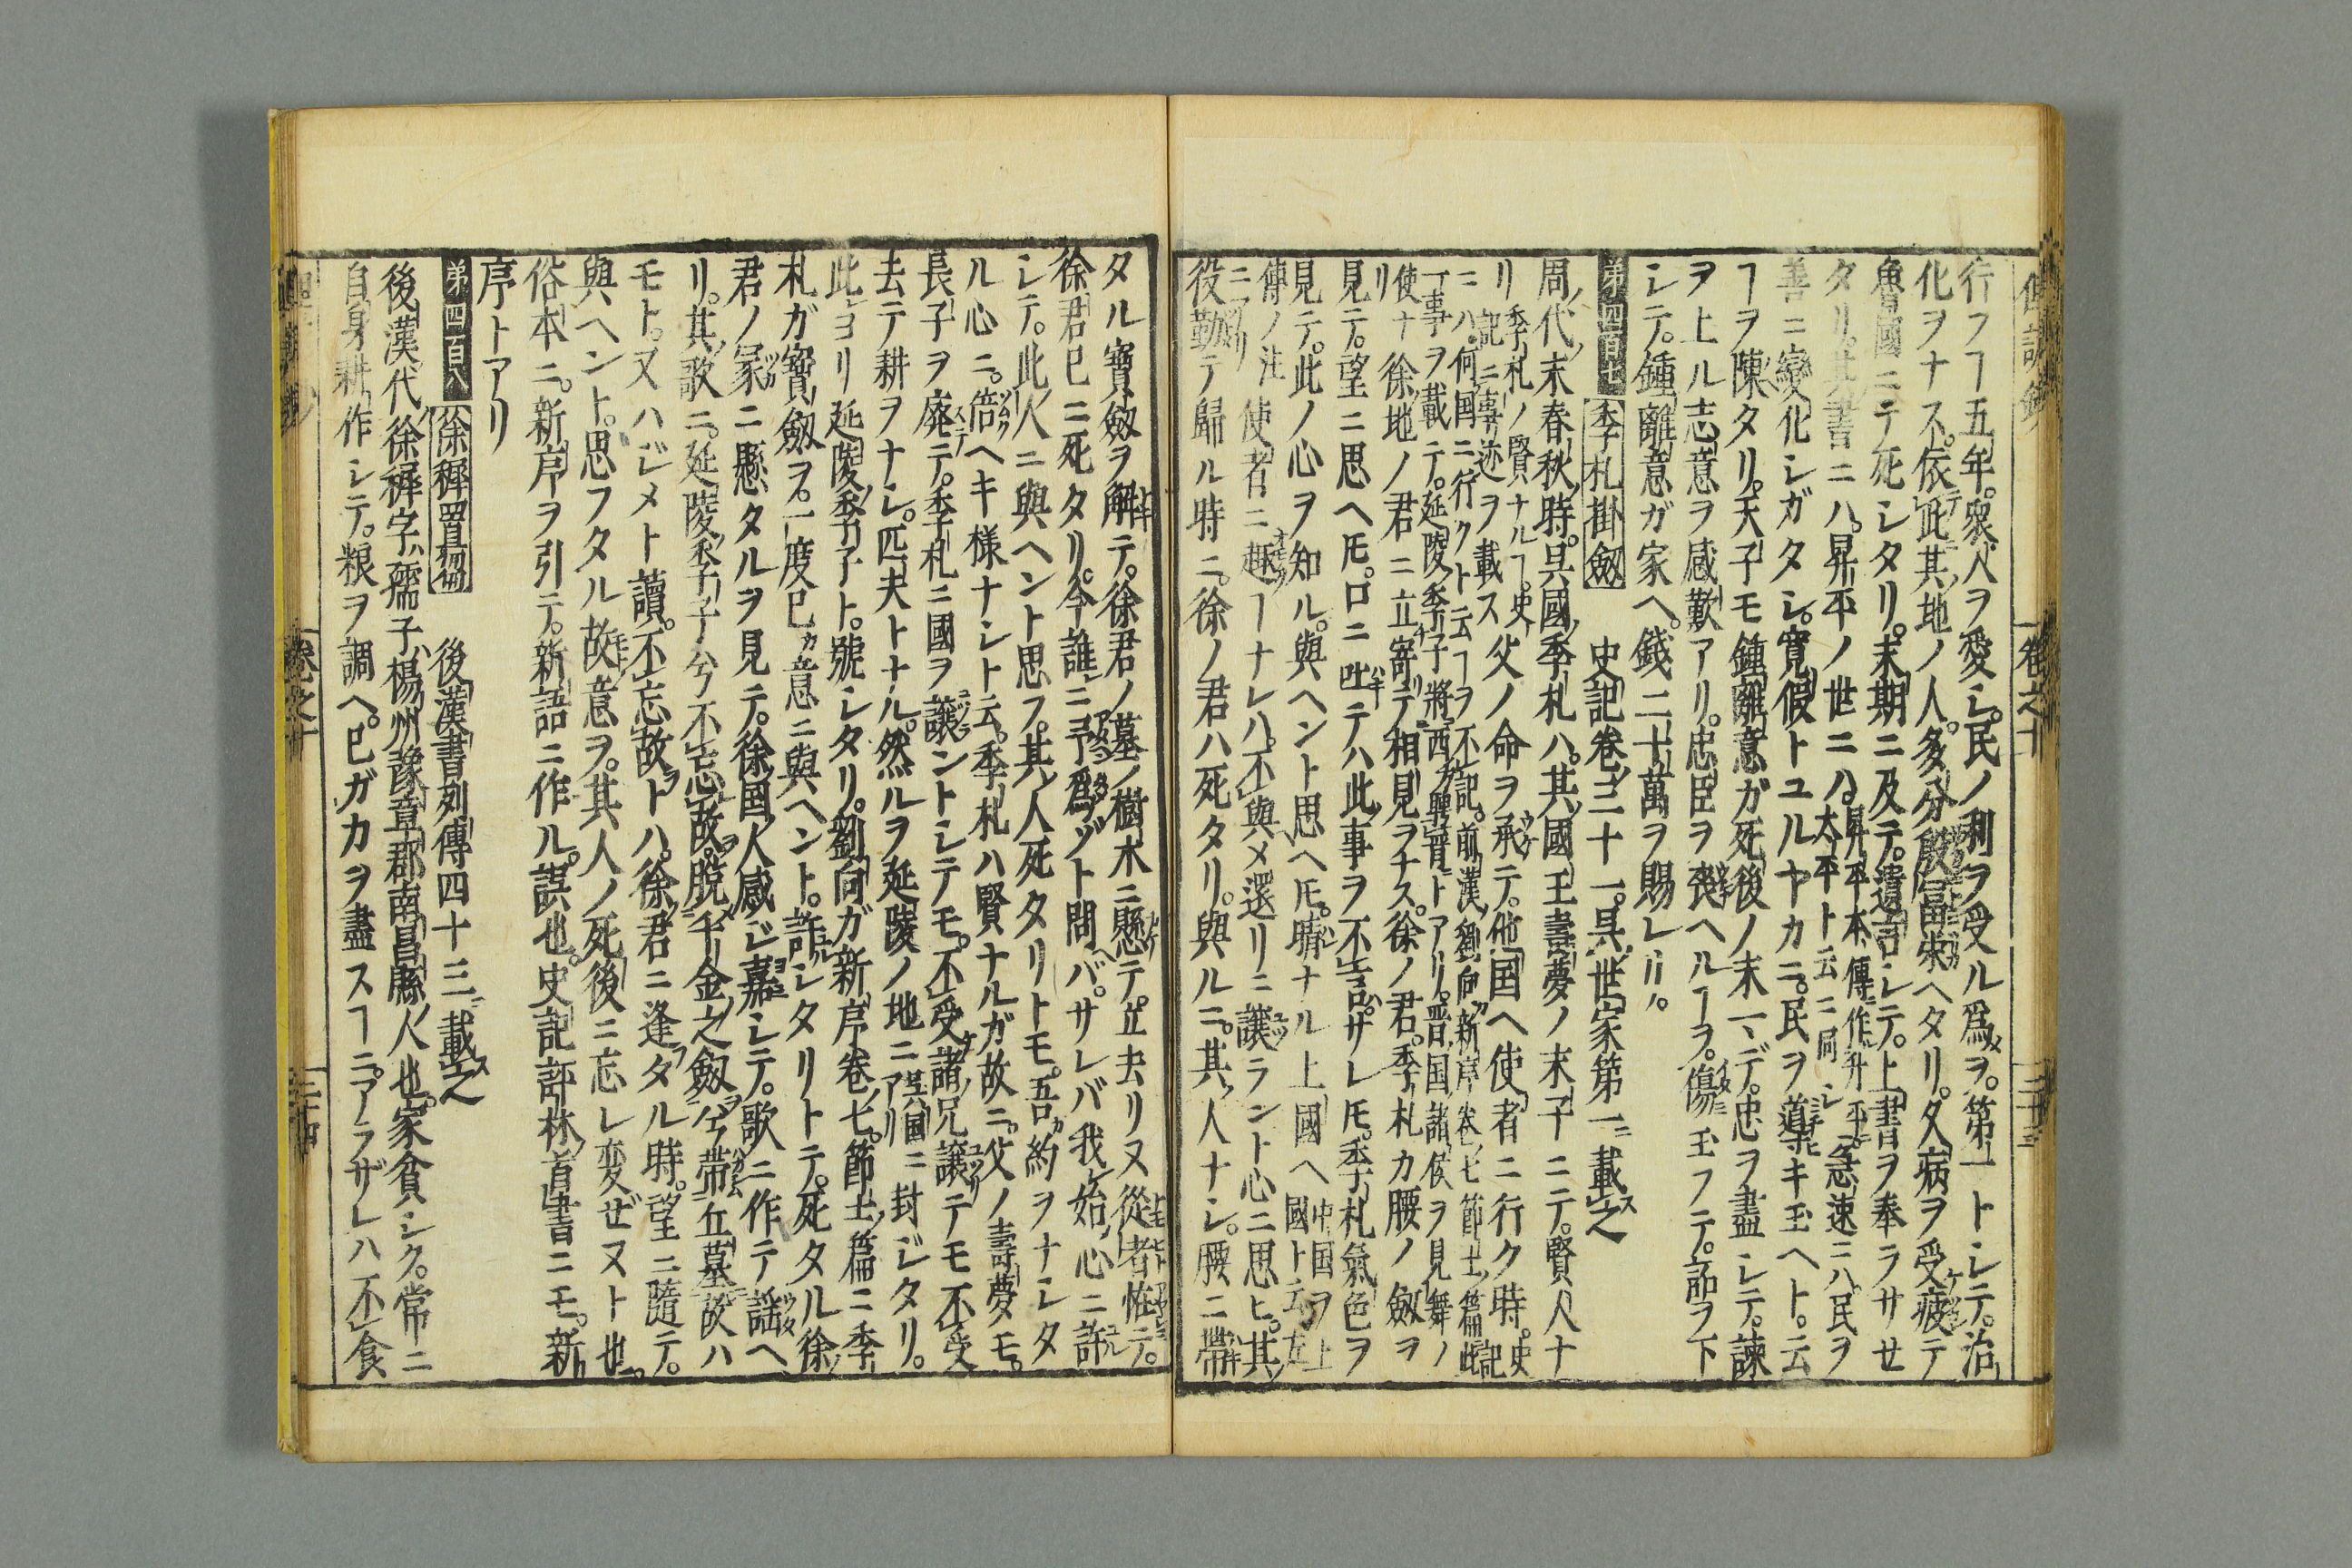 行フヿ五年。衆人ヲ愛シ。民ノ利ヲ受ル爲ヲ。第一トシテ。治
化ヲナス。依此其地ノ人。多分殷冨栄ヘタリ。久病ヲ受疲テ
魯國ニテ死シタリ。末期ニ及テ。遺言シテ。上書ヲ奉ラサせ
タリ。其書ニハ。昇平ノ世ニハ。昇平本傳作升平。太平ト云ニ同シ急速ニハ民ヲ
善ニ變化シガタシ。寛假トユルヤカニ。民ヲ導キ玉ヘト。云
ヿヲ陳タリ。天子モ鍾離意ガ死後ノ末マデ。忠ヲ盡シテ。諫
ヲ上ル志意ヲ感歎アリ。忠臣ヲ喪ヘルヿヲ。傷玉フテ。詔ヲ下
シテ。鍾離意ガ家ヘ。錢二十萬ヲ賜レリ。
第四百七 季札掛劔 史記卷三十一。呉世家第一ニ載之ス
周代末春秋時。呉國季札ハ。其國王壽夢ノ末子ニテ。賢人ナ
リ季札ノ賢ナルヿ。史記ニ事迹ヲ載ス父ノ命ヲ承テ。他国ヘ使者ニ行ク時。史記
ニハ。何国ニ行クト云ヿヲ不記。前漢劉向新序卷七節士篇此
ヿ事ヲ載テ。延陵季子將西聘晉トアリ。晋国諸侯ヲ見舞ノ
使ナリ徐地ノ君ニ立寄テ相見ヲナス。徐ノ君。季札カ腰ノ劔ヲ
見テ。望ニ思ヘ𪜈。口ニ吐テハ此事ヲ不言。サレ𪜈。季札氣色ヲ
見テ。此ノ心ヲ知ル。與ヘント思ヘ𪜈。晴ナル上國ヘ中国ヲ上國ト云左
傳ノ注ニアリ使者ニ趣ヿナレハ。不與メ還リニ讓ラント心ニ思ヒ。其
役勤テ歸ル時ニ。徐ノ君ハ死タリ。與ルニ。其人ナシ。腰ニ帶
タル寶劔ヲ解テ。徐君ノ墓ノ樹木ニ懸テ。立去リヌ從者恠テ。
徐君已ニ死タリ。今誰ニ予爲ゾト問ヘバ。サレバ我始心ニ許
シテ。此人ニ與ヘント思フ。其人死タリトモ。吾約ヲナシタ
ル心ニ。倍ヘキ様ナシト云。季札ハ賢ナルガ故ニ。父ノ壽夢モ。
長子ヲ廃テ。季札ニ國ヲ讓ントシテモ。不受諸兄讓テモ不受
去テ耕ヲナシ。匹夫トナル。然ルヲ延陵ノ地ニ呉国ニアリ封ジタリ。
此ヨリ延陵季子ト。號シタリ。劉向ガ新序卷七。節士篇ニ季
札ガ寶劔ヲ。一度已カ意ニ與ヘント。許シタリトテ。死タル徐
君ノ冢ニ懸タルヲ見テ。徐國人感ジ嘉シテ。歌ニ作テ謡ヘ
リ。其歌ニ。延陵季子兮不忘故。脱千金之劔兮帶丘墓故ハ
モト。又ハジメト讀。不忘故トハ。徐君ニ逢タル時。望ニ隨テ。
與ヘント。思フタル故意ヲ。其人ノ死後ニ忘レ変ぜヌト也。
俗本ニ。新序ヲ引テ。新語ニ作ル。誤也。史記評林首書ニモ。新
序トアリ
第四百八 徐穉置芻 後漢書列傳四十三ニ載之ス
後漢代徐穉字孺子。楊州豫章郡南昌縣人也。家貧シク。常ニ
自身耕作シテ。粮ヲ調ヘ。已ガカヲ盡スヿニアラザレハ不食
卷之十
二十三
卷之十